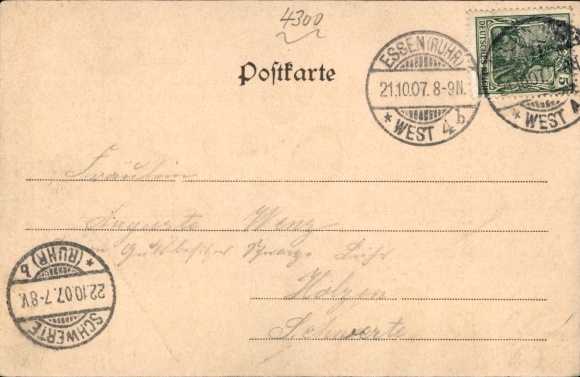 4300
Postkarte
ESSEN (RUHR)
21.10.07. 8-9N.
* WEST 4 b
DEUTSCHES REICH
5
WEST 4
Fräulein
Auguste Wenz
Gutsbesitzer
Holzen
Schwerte
SCHWERTE
22.10.07. 7-8V.
* (RUHR) b